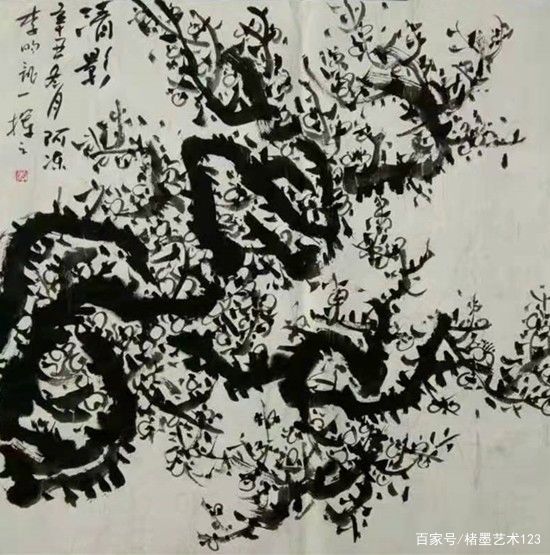 清影
辛丑冬月呵冻
李一挥之
百家号/楮墨艺术123